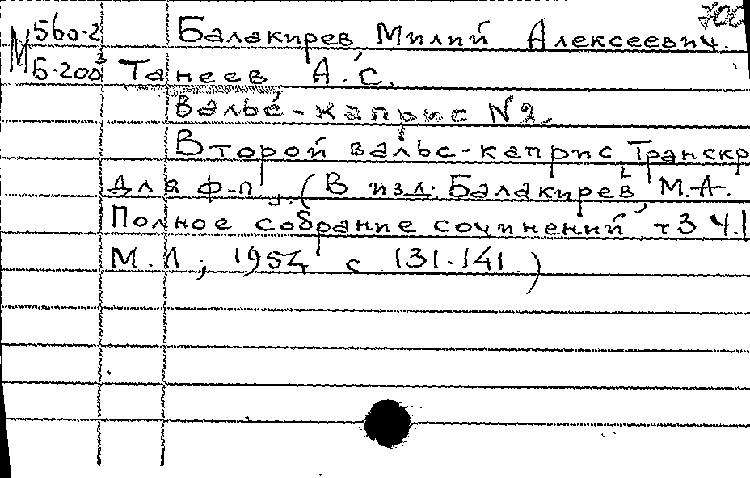 700
М 560-2 Балакирев, Милий Алексеевич.
Б-200³ Танеев А.С.
Вальс-каприс N2.
Второй вальс-каприс Транскр
для ф-п., (В изд. Балакирев, М.А.
Полное собрание сочинений т3 ч.1
М.Л; 1954 с 131-141)